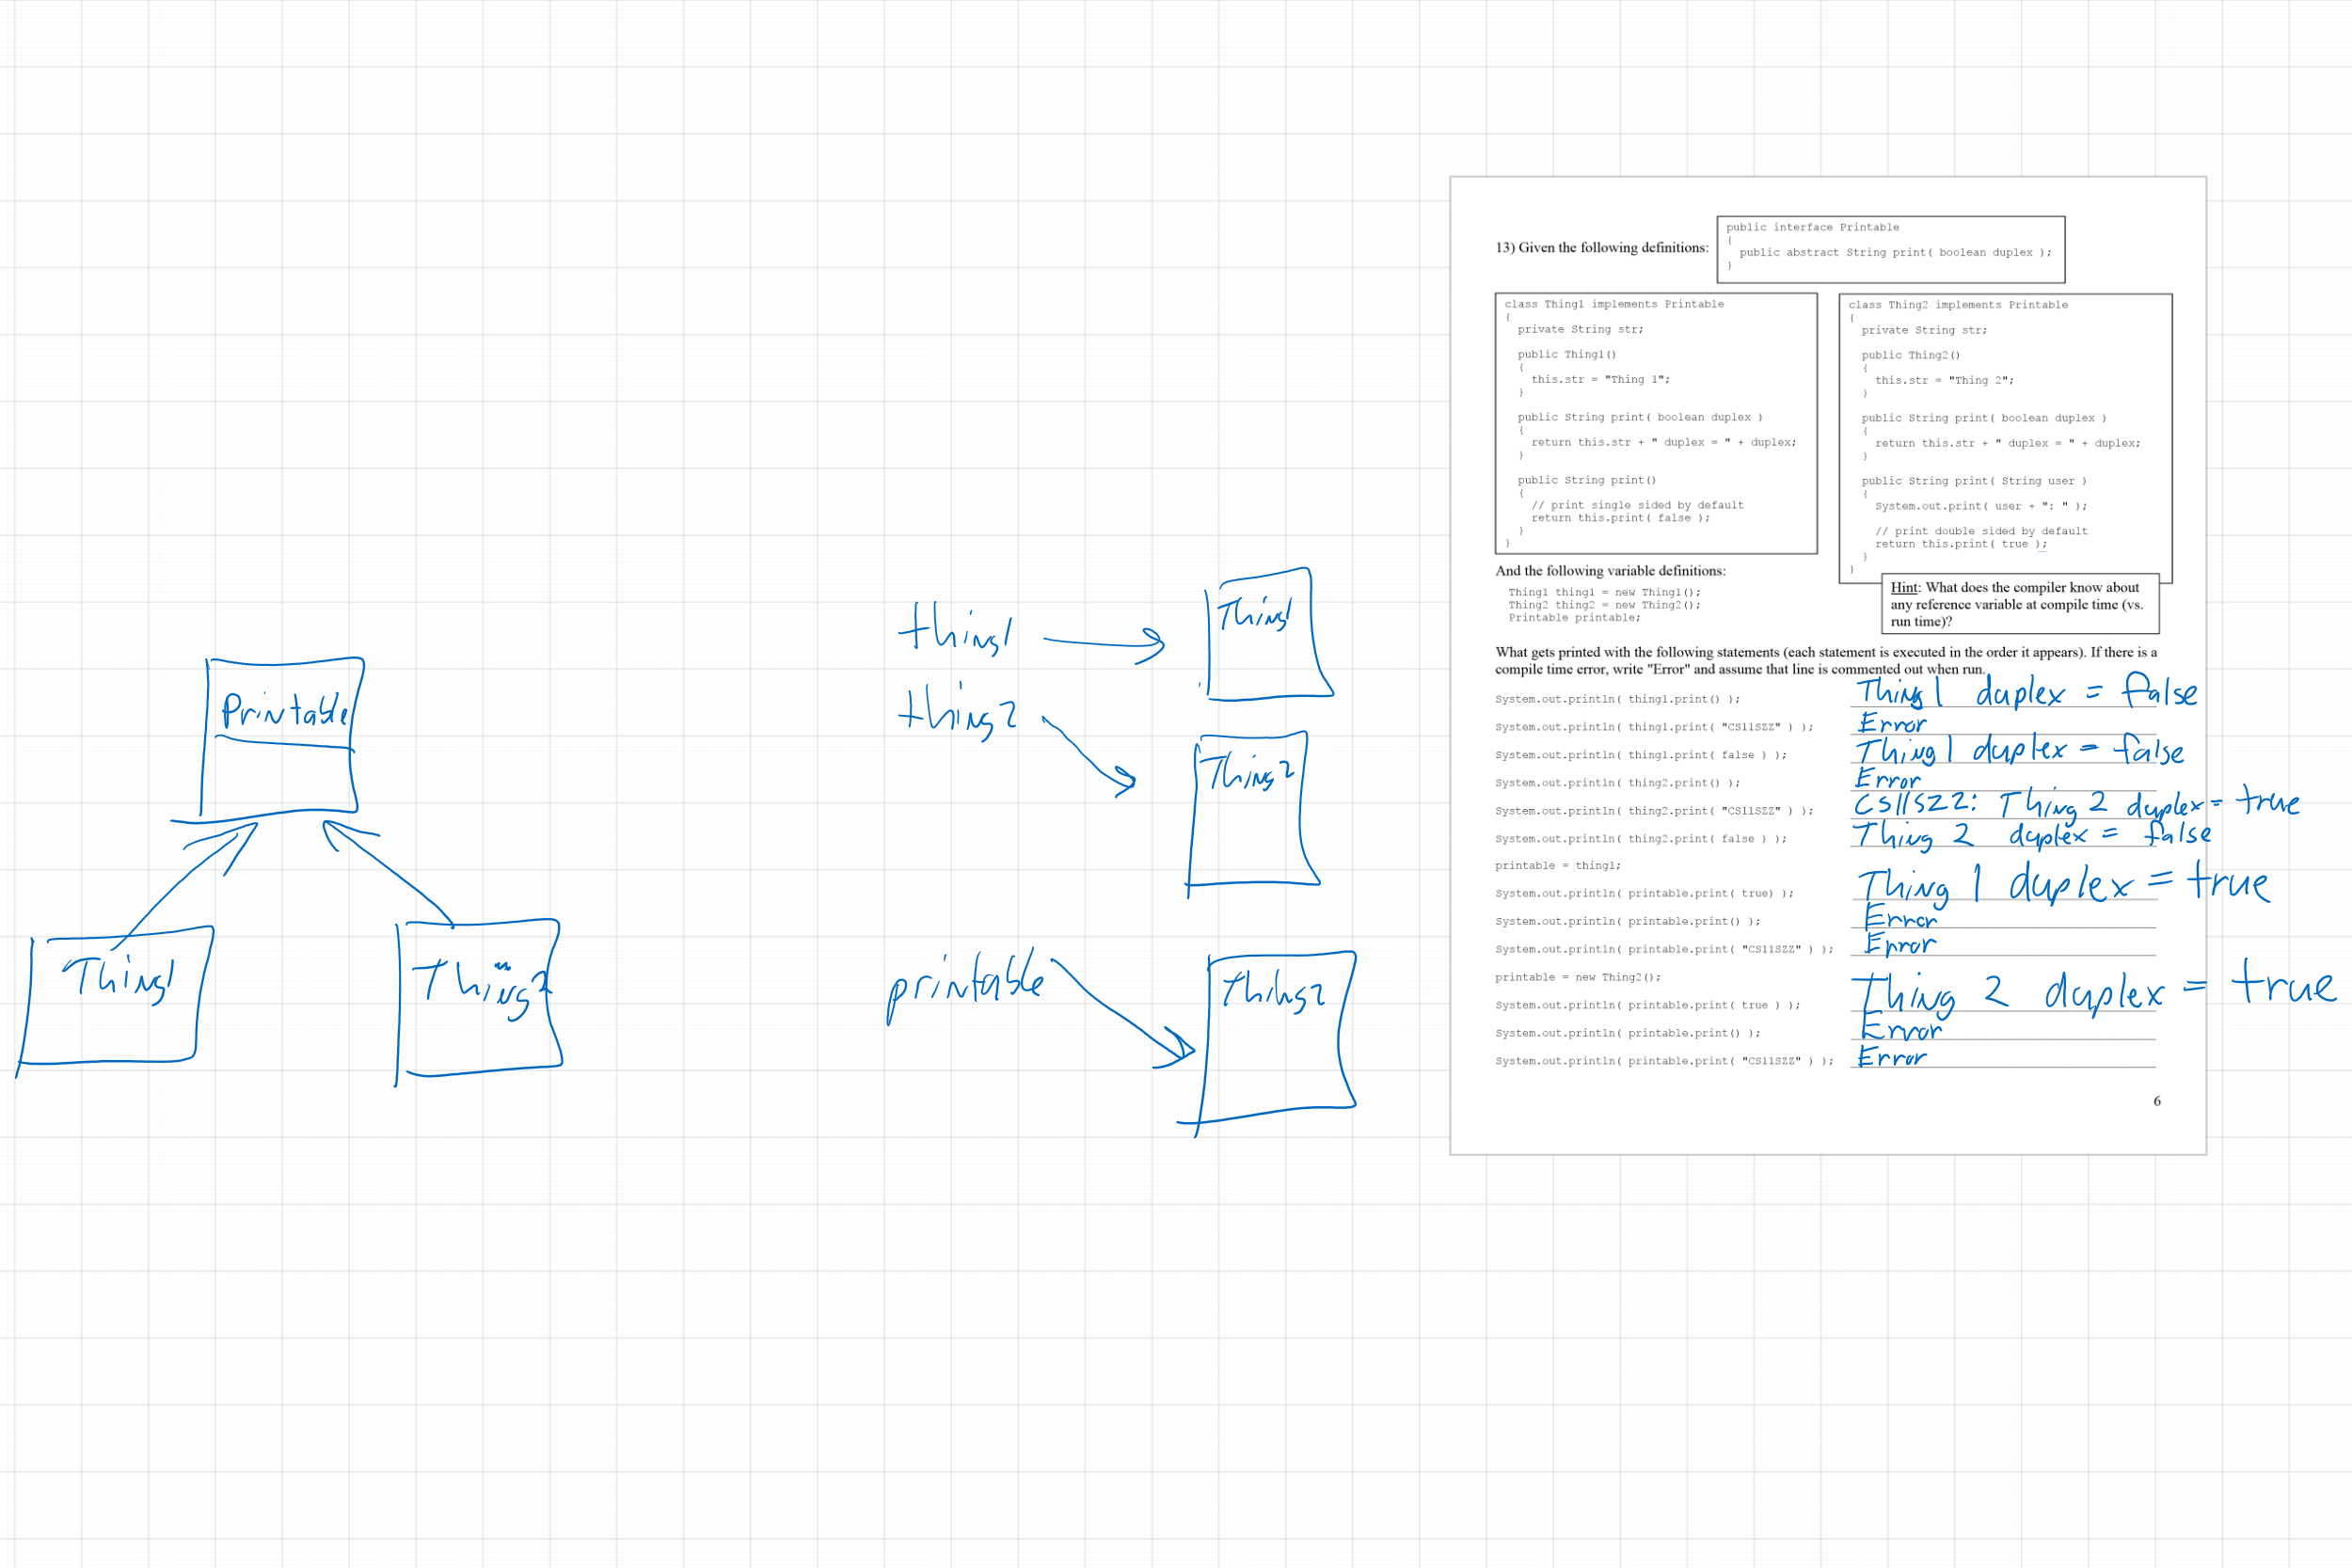 Printable
Thing1
Thing2
thing1
Thing1
thing2
Thing2
printable
Thing2
13) Given the following definitions:
public interface Printable
{
public abstract String print( boolean duplex );
}
class Thing1 implements Printable
{
private String str;
public Thing1()
{
this.str = "Thing 1";
}
public String print( boolean duplex )
{
return this.str + " duplex = " + duplex;
}
public String print()
{
// print single sided by default
return this.print( false );
}
}
class Thing2 implements Printable
{
private String str;
public Thing2()
{
this.str = "Thing 2";
}
public String print( boolean duplex )
{
return this.str + " duplex = " + duplex;
}
public String print( String user )
{
System.out.print( user + ": " );
// print double sided by default
return this.print( true );
}
}
And the following variable definitions:
Thing1 thing1 = new Thing1();
Thing2 thing2 = new Thing2();
Printable printable;
Hint: What does the compiler know about
any reference variable at compile time (vs.
run time)?
What gets printed with the following statements (each statement is executed in the order it appears). If there is a
compile time error, write "Error" and assume that line is commented out when run.
System.out.println( thing1.print() ); Thing 1 duplex = false
System.out.println( thing1.print( "CS11SZZ" ) ); Error
System.out.println( thing1.print( false ) ); Thing 1 duplex = false
System.out.println( thing2.print() ); Error
System.out.println( thing2.print( "CS11SZZ" ) ); CS11SZZ: Thing 2 duplex = true
System.out.println( thing2.print( false ) ); Thing 2 duplex = false
printable = thing1;
System.out.println( printable.print( true) ); Thing 1 duplex = true
System.out.println( printable.print() ); Error
System.out.println( printable.print( "CS11SZZ" ) ); Error
printable = new Thing2();
System.out.println( printable.print( true ) ); Thing 2 duplex = true
System.out.println( printable.print() ); Error
System.out.println( printable.print( "CS11SZZ" ) ); Error
6